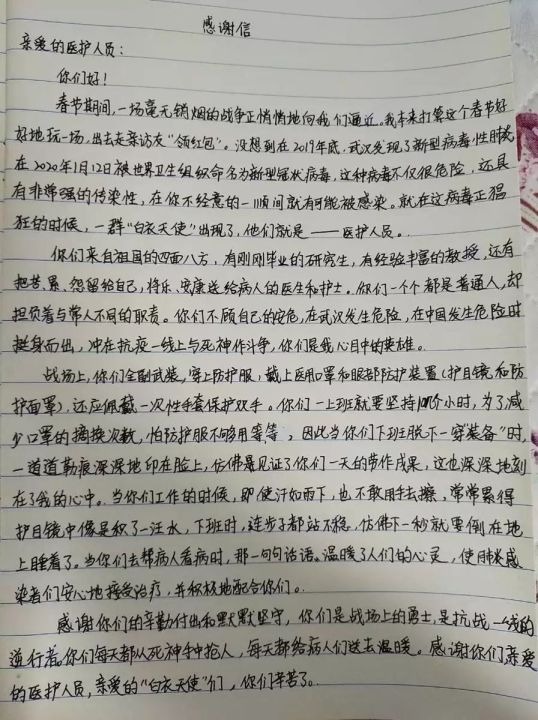 感谢信
亲爱的医护人员：
你们好！
春节期间，一场毫无硝烟的战争正悄悄地向我们逼近。我本来打算这个春节好
好地玩一场，出去走亲访友“领红包”。没想到在2019年底，武汉发现了新型病毒性肺炎
在2020年1月12日被世界卫生组织命名为新型冠状病毒，这种病毒不仅很危险，还具
有非常强的传染性，在你不经意的一瞬间就有可能被感染。就在这病毒正猖
狂的时候，一群“白衣天使”出现了，他们就是——医护人员。
你们来自祖国的四面八方，有刚刚毕业的研究生，有经验丰富的教授，还有
把苦、累、怨留给自己，将乐、安康送给病人的医生和护士。你们一个个都是普通人，却
担负着与常人不同的职责。你们不顾自己的安危，在武汉发生危险，在中国发生危险时
挺身而出，冲在抗疫一线上与死神作斗争，你们是我心目中的英雄。
战场上，你们全副武装，穿上防护服，戴上医用口罩和眼部防护装置（护目镜和防
护面罩），还应佩戴一次性手套保护双手。你们一上班就要坚持个小时，为了减
少口罩的摘换次数，怕防护服不够用等等，因此当你们下班脱下一穿装备”时，
一道道勒痕深深地印在脸上，仿佛是见证了你们一天的劳作成果，这也深深地刻
在了我的心中。当你们工作的时候，即使汗如雨下，也不敢用手去擦，常常累得
护目镜中像是积了一汪水，下班时，连步子都站不稳，仿佛下一秒就要倒在地
上睡着了。当你们去帮病人看病时，那一句句话语。温暖了人们的心灵，使肺炎感
染者们安心地接受治疗，并积极地配合你们。
感谢你们的辛勤付出和默默坚守，你们是战场上的勇士，是抗战一线的
逆行者。你们每天都从死神手中抢人，每天都给病人们送去温暖。感谢你们，亲爱
的医护人员，亲爱的“白衣天使”们，你们辛苦了。